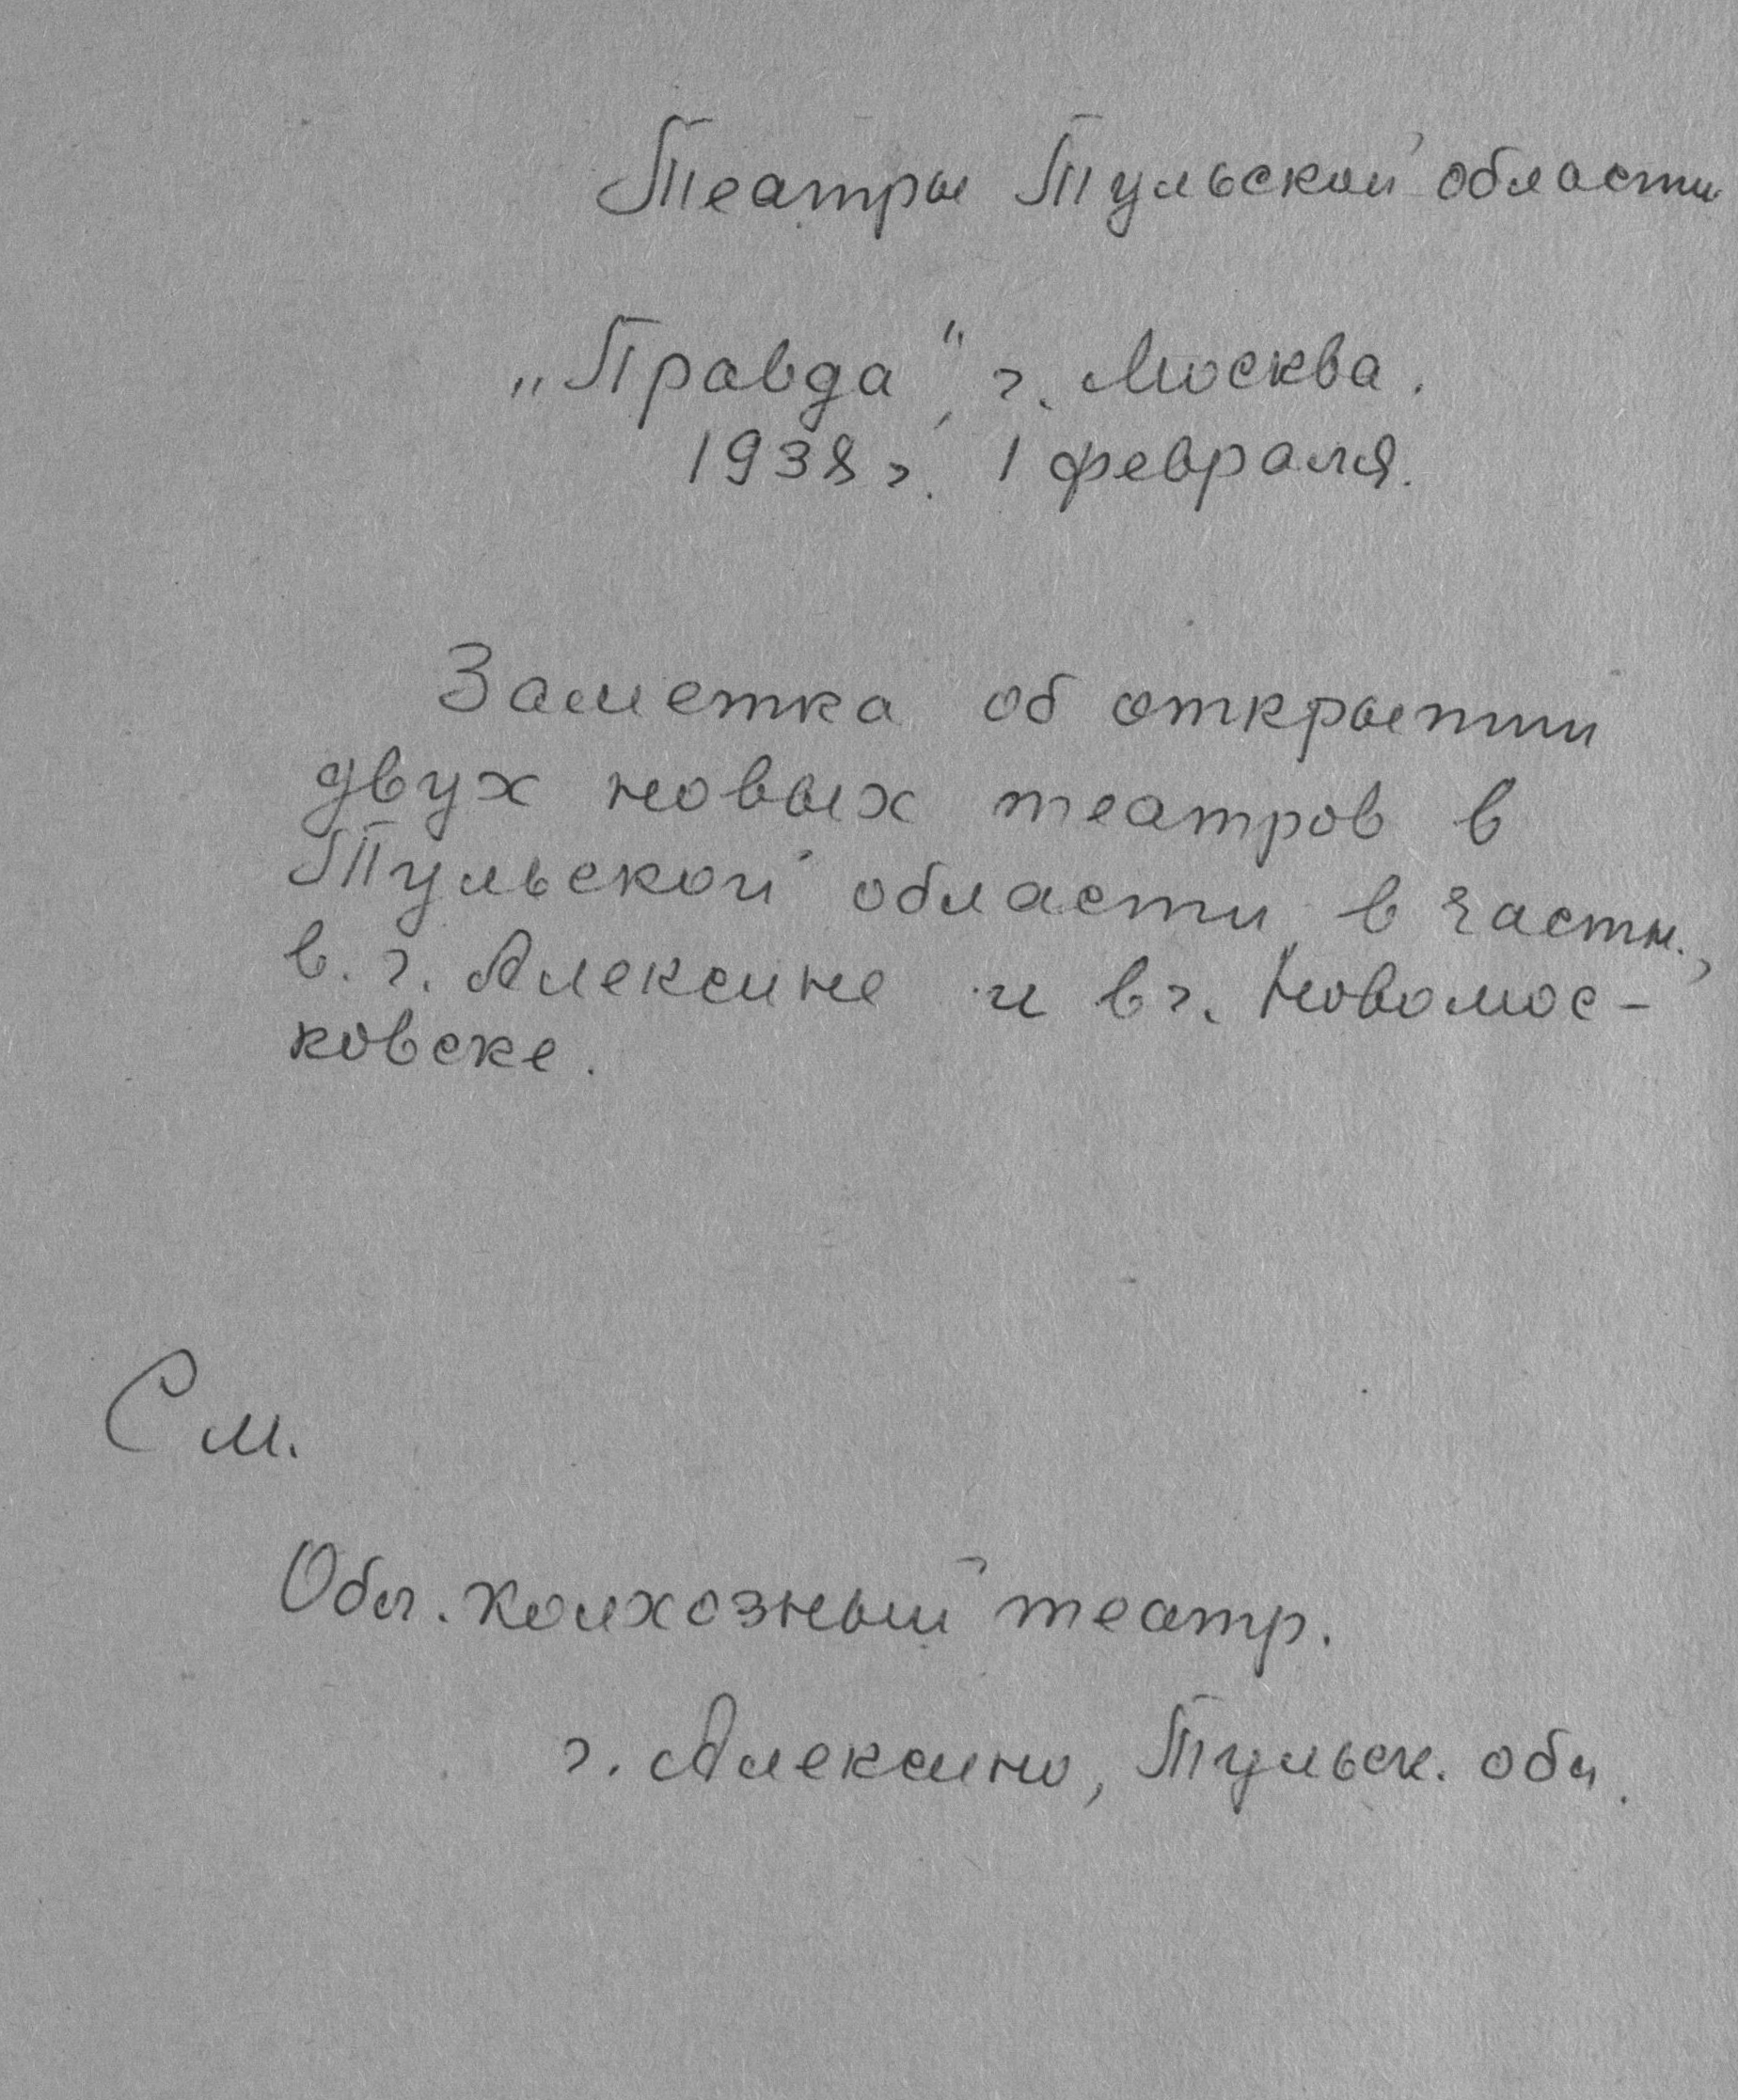 Театры Тульской области
„Правда", г. Москва.
1938 г. 1 февраля.
Заметка об открытии
двух новых театров в
Тульской области, в частн.,
в. г. Алексине и в г. Новомос-
ковске.
См.
Обл. колхозный театр.
г. Алексино, Тульск. обл.